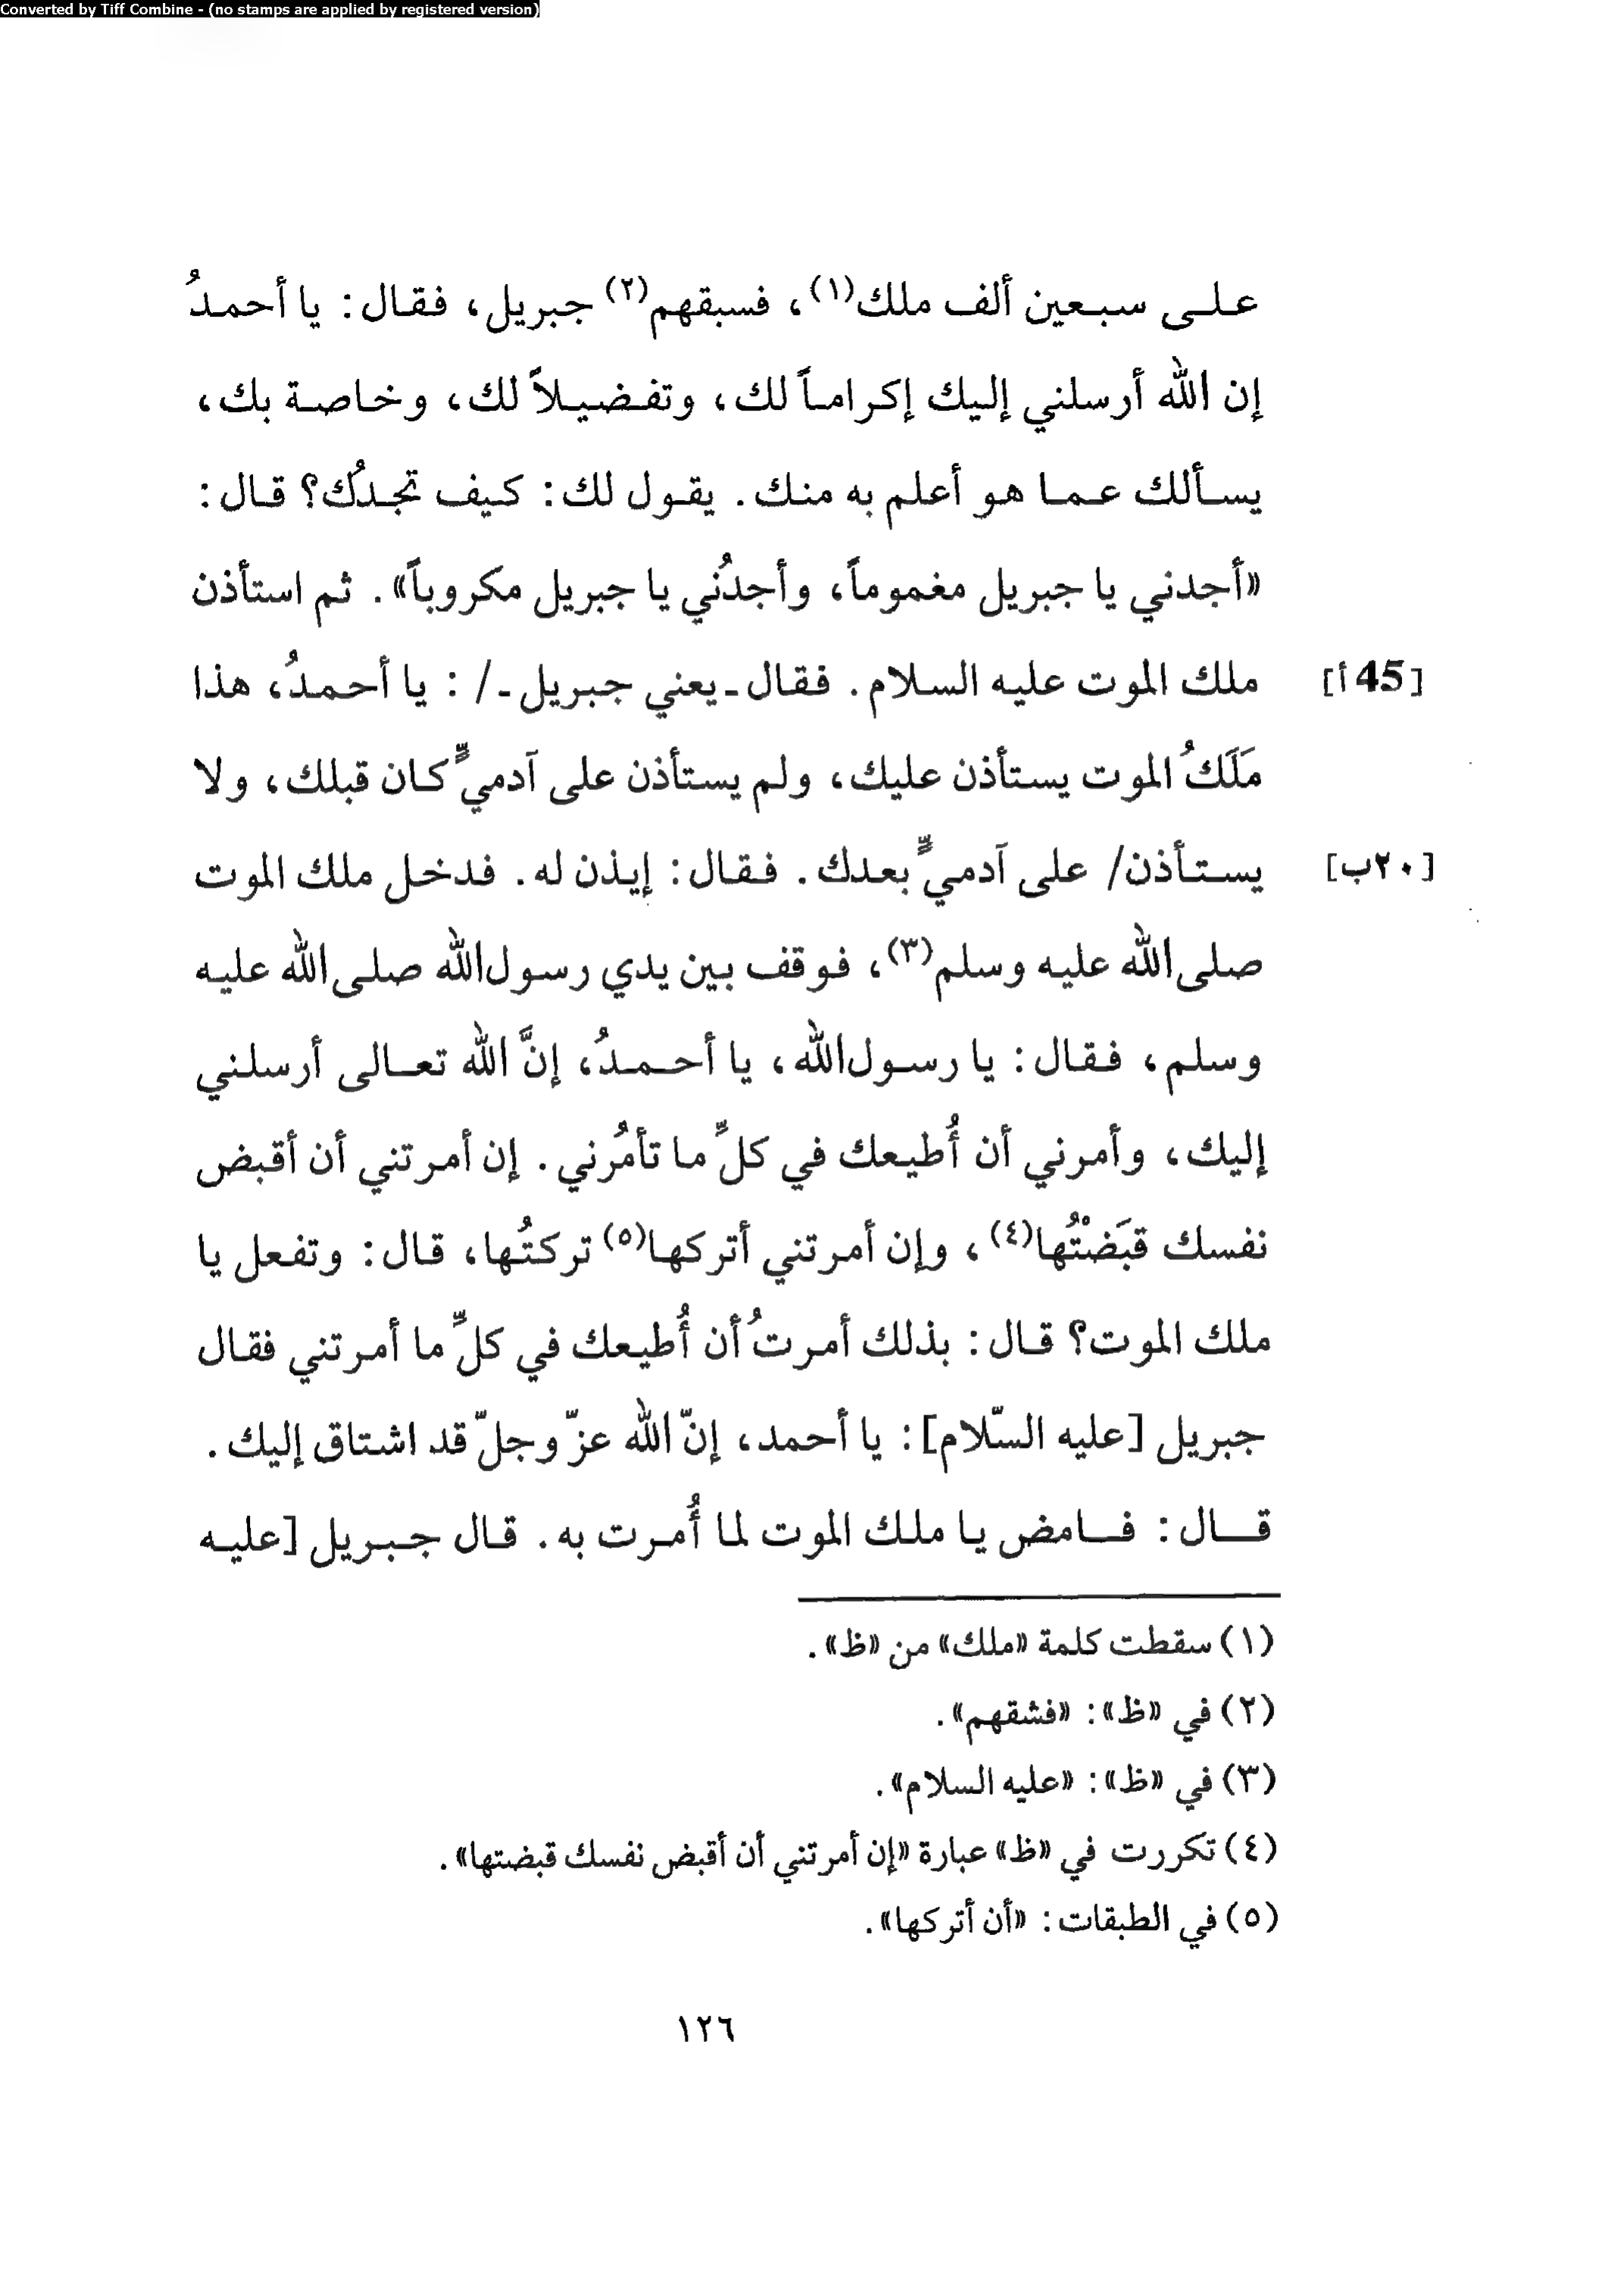 Converted by Tiff Combine - (no stamps are applied by registered version)
على سبعين ألف ملك(١)، فسبقهم(٢) جبريل، فقال: يا أحمدُ
إن الله أرسلني إليك إكراماً لك، وتفضيلاً لك، وخاصة بك،
يسألك عما هو أعلم به منك. يقول لك: كيف تجدُك؟ قال:
«أجدني يا جبريل مغموماً، وأجدُني يا جبريل مكروباً». ثم استأذن
ملك الموت عليه السلام. فقال ـ يعني جبريل ـ/ : يا أحمدُ، هذا [45أ]
مَلَكُ الموت يستأذن عليك، ولم يستأذن على آدميٍّ كان قبلك، ولا
يستأذن/ على آدميٍّ بعدك. فقال: إيذن له. فدخل ملك الموت [٢٠ب]
صلى الله عليه وسلم(٣)، فوقف بين يدي رسول الله صلى الله عليه
وسلم، فقال: يا رسول الله، يا أحمدُ، إنَّ الله تعالى أرسلني
إليك، وأمرني أن أُطيعك في كلِّ ما تأمُرني. إن أمرتني أن أقبض
نفسك قبَضْتُها(٤)، وإن أمرتني أتركها(٥) تركتُها، قال: وتفعل يا
ملك الموت؟ قال: بذلك أمرتُ أن أُطيعك في كلِّ ما أمرتني فقال
جبريل [عليه السّلام]: يا أحمد، إنّ الله عزّ وجلّ قد اشتاق إليك.
قال: فامض يا ملك الموت لما أُمرت به. قال جبريل [عليه
(١) سقطت كلمة «ملك» من «ظ».
(٢) في «ظ»: «فشقهم».
(٣) في «ظ»: «عليه السلام».
(٤) تكررت في «ظ» عبارة «إن أمرتني أن أقبض نفسك قبضتها».
(٥) في الطبقات: «أن أتركها».
١٢٦